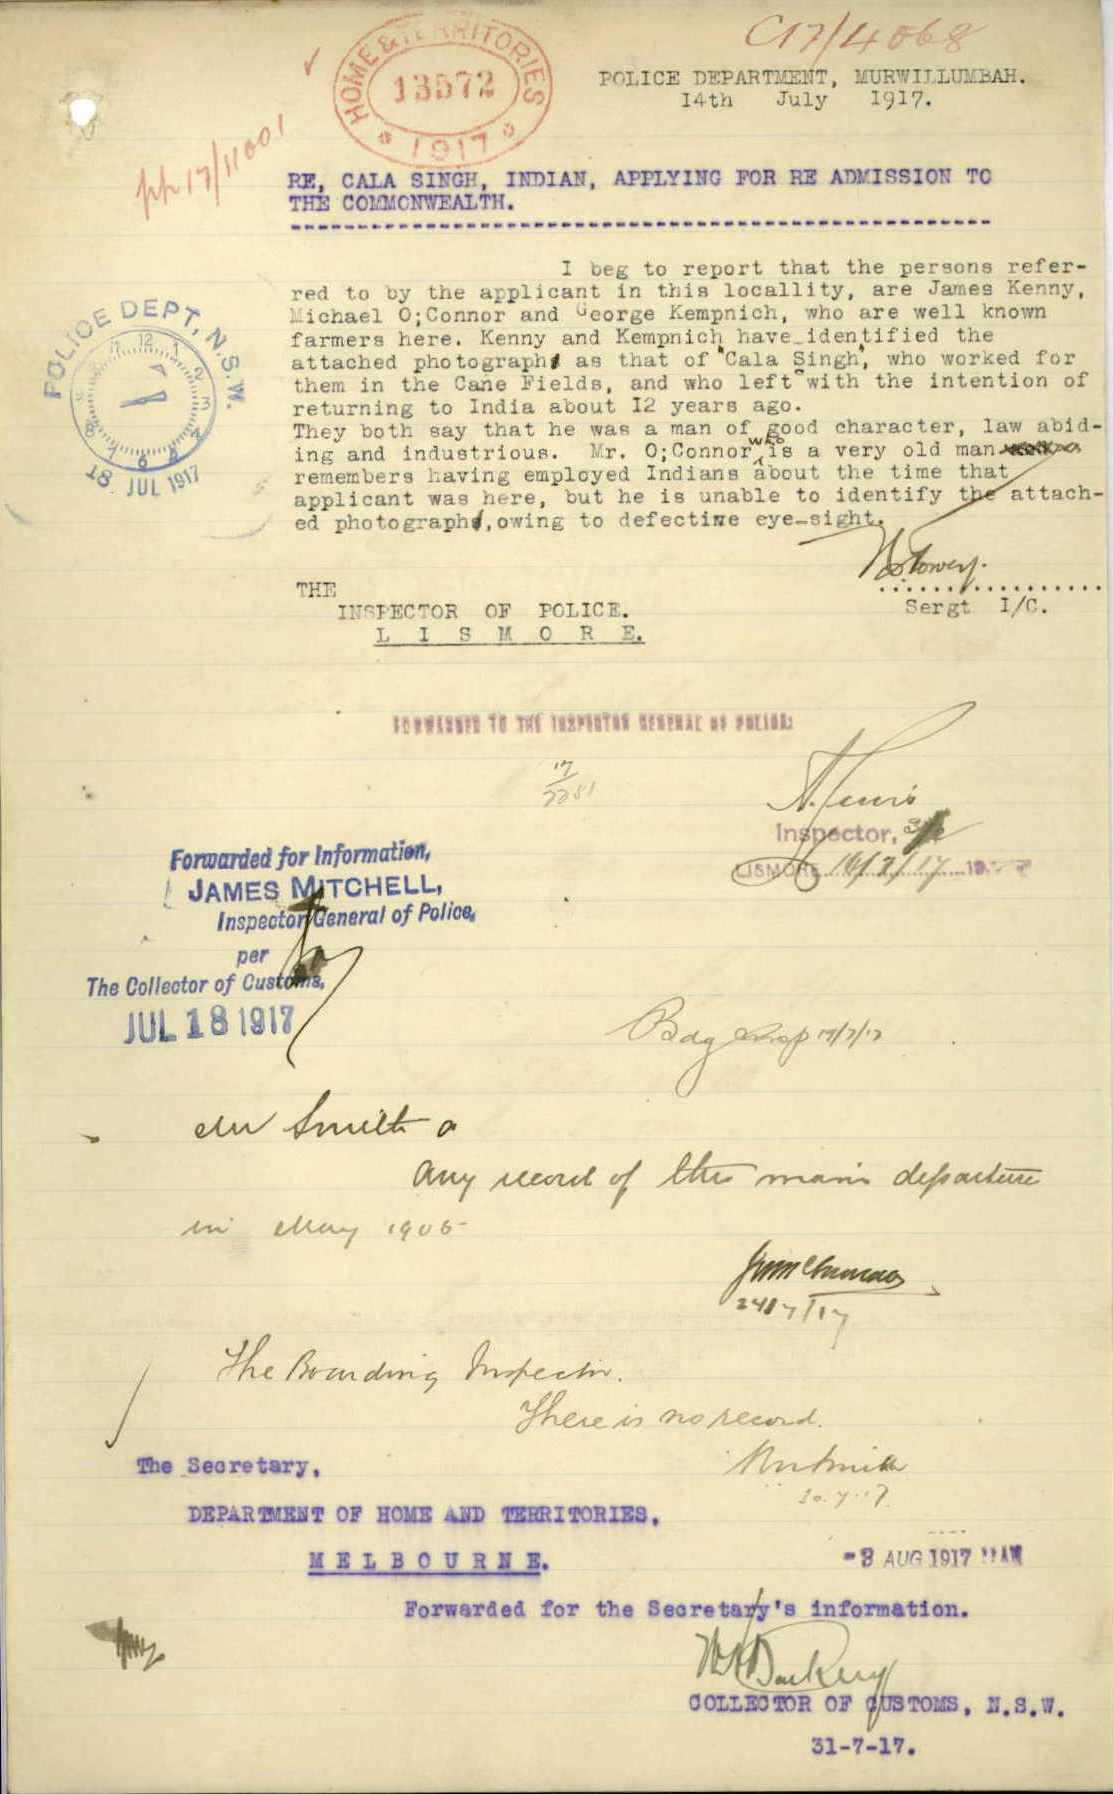 C17/4068
HOME & TERRITORIES
13572
1917
POLICE DEPARTMENT, MURWILLUMBAH.
14th July 1917.
pp 17/11001
RE, CALA SINGH, INDIAN, APPLYING FOR RE ADMISSION TO
THE COMMONWEALTH.
I beg to report that the persons refer-
red to by the applicant in this locallity, are James Kenny,
Michael O;Connor and George Kempnich, who are well known
farmers here. Kenny and Kempnich have identified the
attached photograph as that of "Cala Singh", who worked for
them in the Cane Fields, and who left with the intention of
returning to India about I2 years ago.
They both say that he was a man of good character, law abid-
ing and industrious. Mr. O;Connor who is a very old man
remembers having employed Indians about the time that
applicant was here, but he is unable to identify the attach-
ed photograph, owing to defective eye-sight.
POLICE DEPT, N.S.W.
18 JUL 1917
Sergt I/C.
THE
INSPECTOR OF POLICE.
L I S M O R E.
FORWARDED TO THE INSPECTOR GENERAL OF POLICE.
17
2281
Inspector,
LISMORE 16/7/17 19
Forwarded for Information,
JAMES MITCHELL,
Inspector General of Police,
per
The Collector of Customs,
JUL 18 1917
Bdg Insp 19/7/17
Mr Smith
Any record of this man's departure
in May 1905
24/7/17
The Boarding Inspector.
There is no record.
30.7.17
The Secretary,
DEPARTMENT OF HOME AND TERRITORIES,
M E L B O U R N E.
-3 AUG 1917
Forwarded for the Secretary's information.
COLLECTOR OF CUSTOMS, N.S.W.
31-7-17.